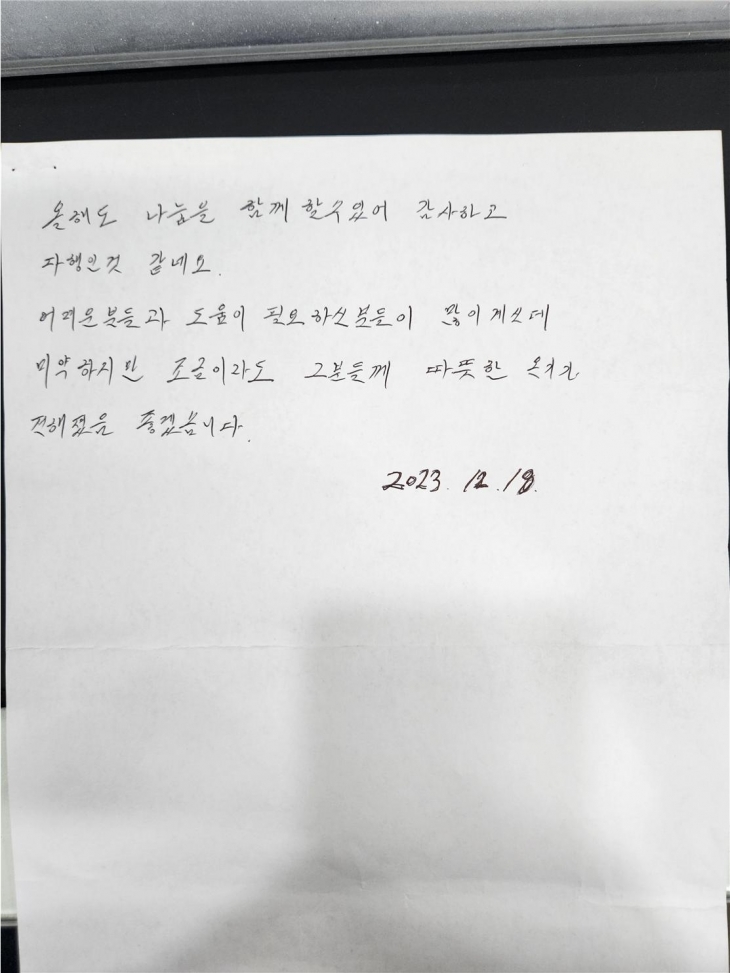 올해도 나눔을 함께 할수있어 감사하고
다행인것 같네요.
어려운분들과 도움이 필요하신분들이 많이계신데
미약하지만 조금이라도 그분들께 따뜻한 온기가
전해졌음 좋겠봅니다.
2023. 12. 18.